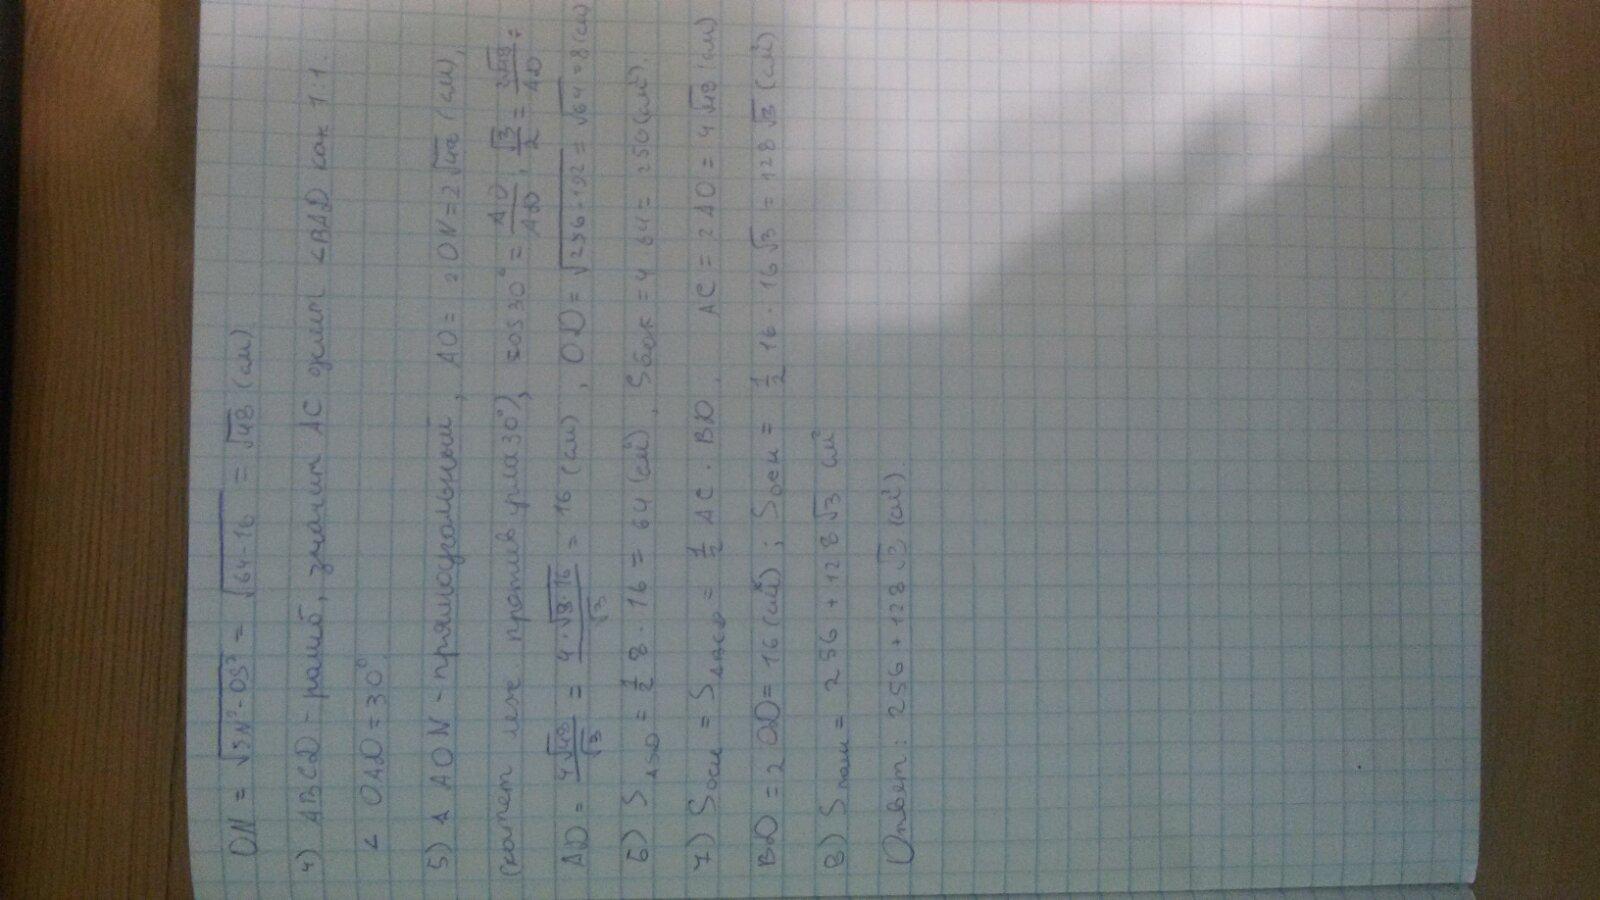 ON = √SN²-OS² = √64-16 = √48 (см)
4) ABCD - ромб, значит AC делит ∠BAD как 1:1.
∠ OAD = 30°
5) Δ AON - прямоугольный, AO = 2ON = 2√48 (см),
(катет леж против угла 30°), cos30° = AO/AD, √3/2 = 2√48/AD;
AD = 4√48/√3 = 4·√3·16/√3 = 16 (см), OD = √256-192 = √64 = 8 (см)
6) S ASD = 1/2 8·16 = 64 (см²), Sбок = 4 64 = 250 (см²).
7) Sосн = S ABCD = 1/2 AC · BD. AC = 2AO = 4√48 (см)
BD = 2OD = 16 (см); Sосн = 1/2 16 · 16√3 = 128√3 (см²)
8) Sполн = 256 + 128√3 см²
Ответ: 256 + 128√3 (см²).